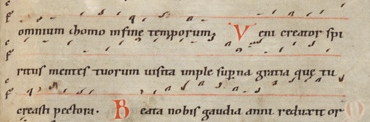 omnium chomo in fine temporum Veni creator spi
ritus mentes tuorum uisita imple superna gratia que tu
creasti pectora. Beata nobis gaudia anni reduxit or